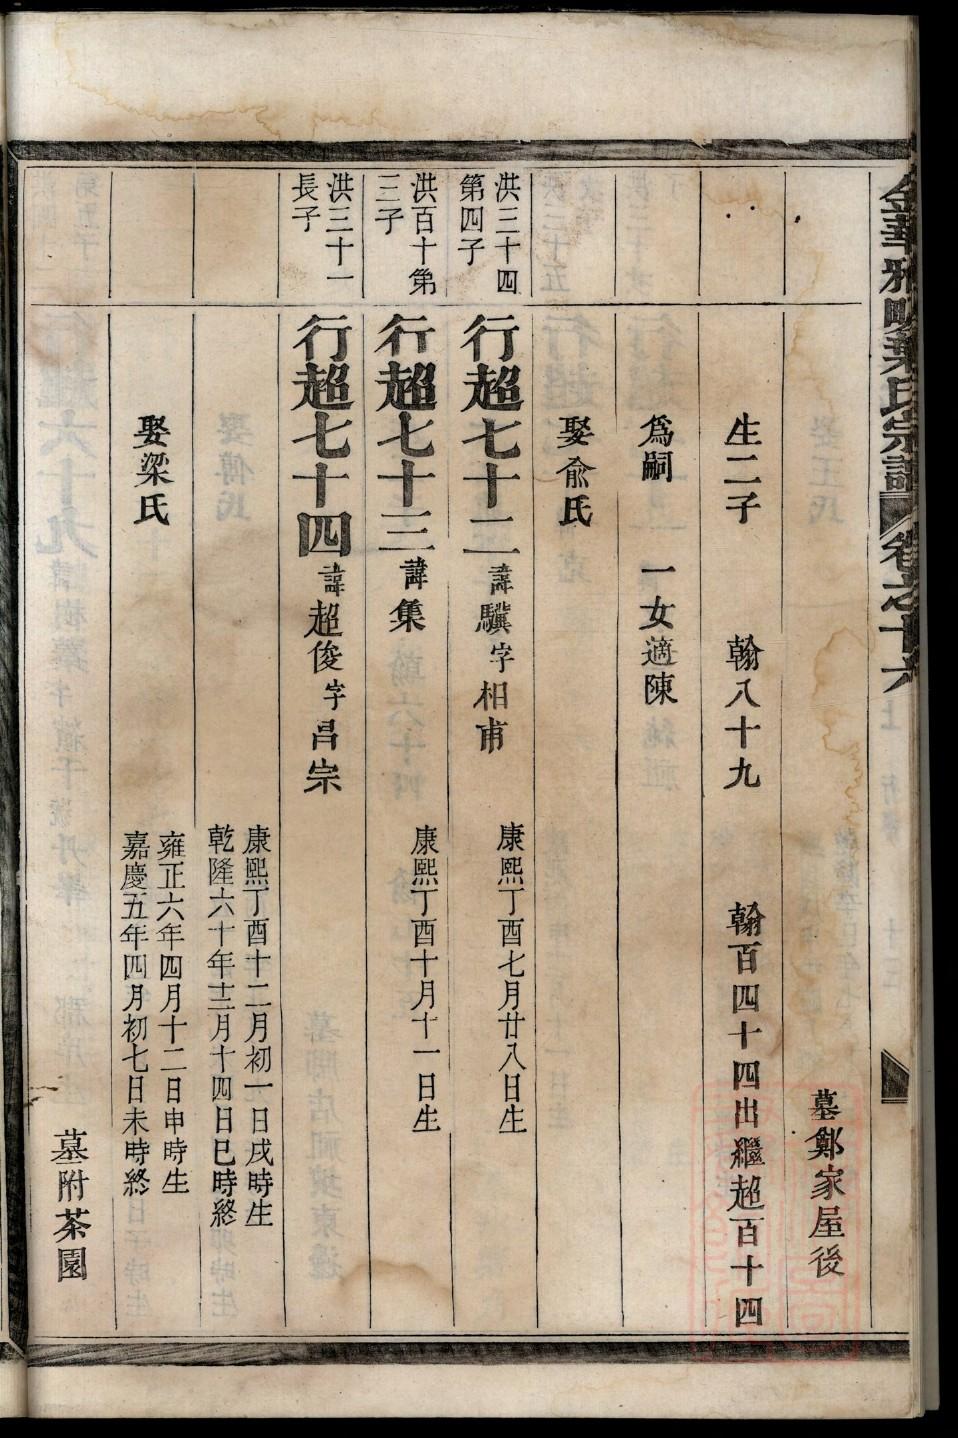 金華雅畈葉氏宗譜 卷之十六
墓鄭家屋後
生二子 翰八十九 翰百四十四出繼超百十四
為嗣 一女適陳
娶俞氏
洪三十四
第四子
行超七十二 諱驥字相甫
康熙丁酉七月廿八日生
洪百十第
三子
行超七十三 諱集
康熙丁酉十月十一日生
洪三十一
長子
行超七十四 諱超俊字昌宗
康熙丁酉十二月初一日戌時生
乾隆六十年十二月十四日巳時終
娶梁氏
雍正六年四月十二日申時生
嘉慶五年四月初七日未時終
墓附茶園